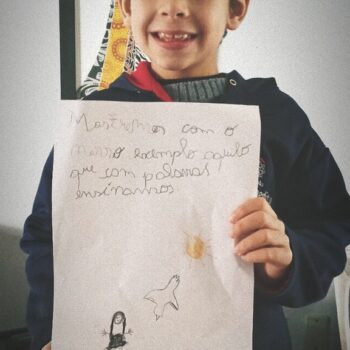 Mostremos com o
nosso exemplo aquilo
que com palavras
ensinamos.